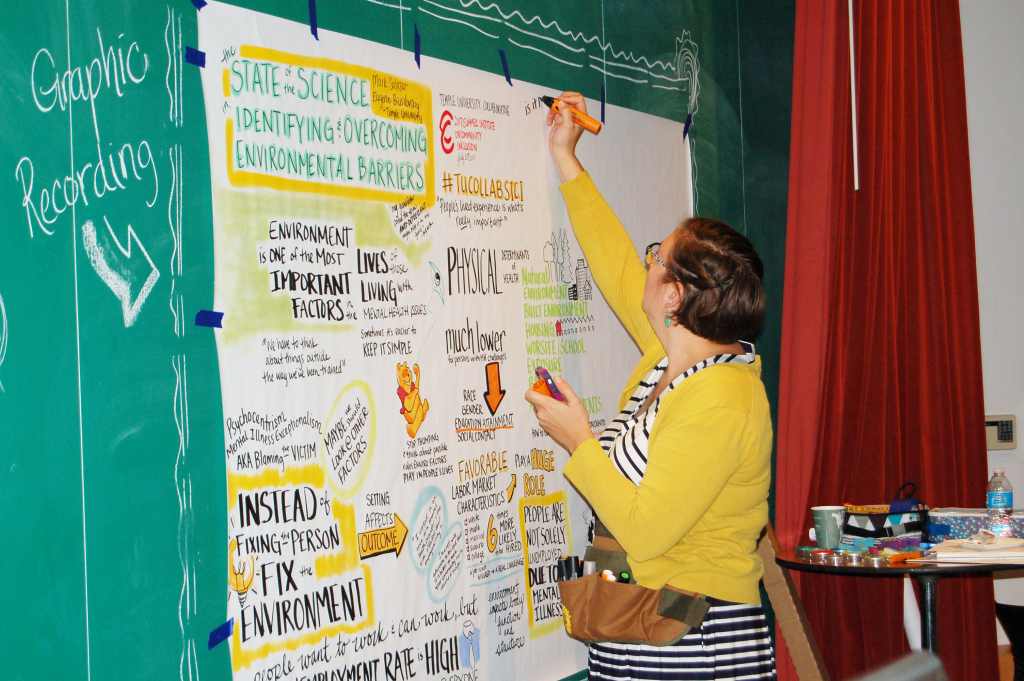 Graphic
Recording
the
STATE of the SCIENCE
Mark Salzer
Temple University
in
IDENTIFYING & OVERCOMING
ENVIRONMENTAL BARRIERS
TEMPLE UNIVERSITY COLLABORATIVE
SUMMER INSTITUTE
ON COMMUNITY
INCLUSION
#TUCOLLABSICI
"People's lived experience is what's
really important"
is it
ENVIRONMENT
is ONE of the MOST
IMPORTANT
FACTORS in the
LIVES of those
LIVING with
MENTAL HEALTH ISSUES.
Sometimes it's easier to
KEEP IT SIMPLE
"We have to think
about things outside
the way we've been trained"
PHYSICAL
DETERMINANTS
of
HEALTH
Natural
ENVIRONMENT
BUILT ENVIRONMENT
HOUSING
WORKSITE SCHOOL
EXPOSURE
much lower
for persons with MH challenges
RACE
GENDER
EDUCATION ATTAINMENT
SOCIAL CONTACT
Psychocentrism
Mental Illness Exceptionalism
AKA Blaming the VICTIM
MAYBE we
should
LOOK @ OTHER
FACTORS
STOP THUMPING
& think about outside
PLAY IN PEOPLE'S LIVES
"INSTEAD of
FIXING the PERSON
FIX the
ENVIRONMENT
SETTING
AFFECTS
OUTCOME
FAVORABLE
LABOR MARKET
CHARACTERISTICS
PLAY a HUGE
ROLE
white
male
married
suburb
college
6 times
MORE
LIKELY
to be HIRED
PEOPLE ARE
NOT SOLELY
UNEMPLOYED
DUE to
MENTAL
ILLNESS
environment
impacts body
function and
structure
people want to work & can work, but
UNEMPLOYMENT RATE is HIGH